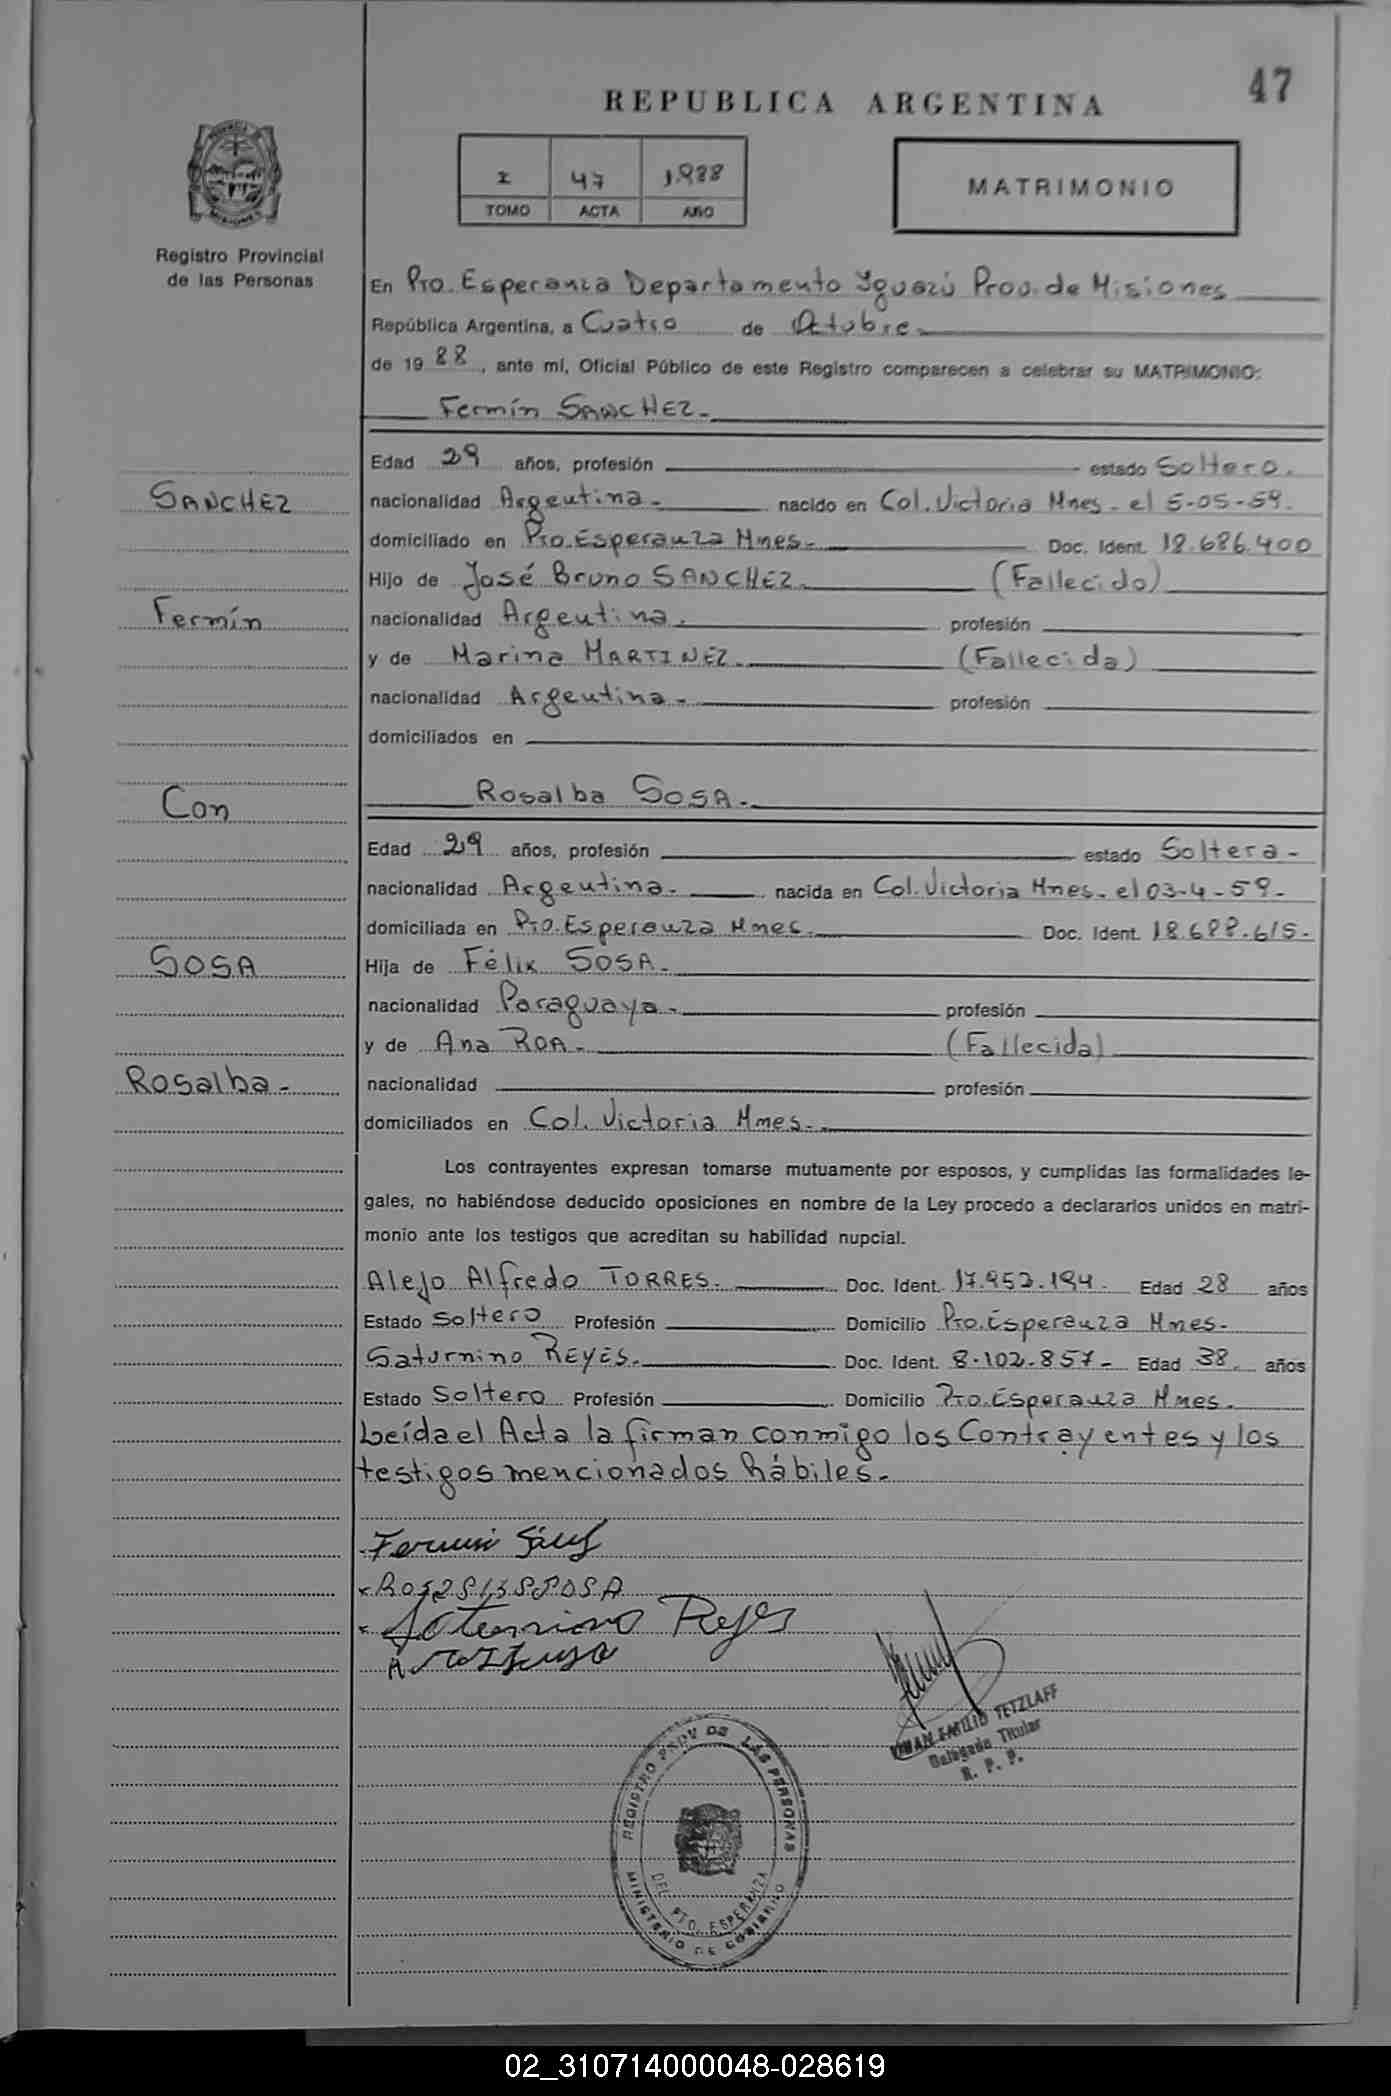 47
REPUBLICA ARGENTINA
I 47 1988
TOMO ACTA AÑO
MATRIMONIO
Registro Provincial
de las Personas
En Pto. Esperanza Departamento Iguazú Prov. de Misiones
República Argentina, a Cuatro de Octubre
de 1988, ante mí, Oficial Público de este Registro comparecen a celebrar su MATRIMONIO:
Fermín SANCHEZ.-
Edad 29 años, profesión estado Soltero.
SANCHEZ
nacionalidad Argentina.- nacido en Col. Victoria Mnes. el 5-05-59.
domiciliado en Pto. Esperanza Mnes.- Doc. Ident. 18.686.400
Hijo de José Bruno SANCHEZ. (Fallecido)
Fermín
nacionalidad Argentina. profesión
y de Marina MARTINEZ. (Fallecida)
nacionalidad Argentina.- profesión
domiciliados en
Con
Rosalba SOSA.-
Edad 29 años, profesión estado Soltera-
nacionalidad Argentina.- nacida en Col. Victoria Mnes. el 03-4-59.-
domiciliada en Pto. Esperanza Mnes. Doc. Ident. 18.688.615.-
SOSA
Hija de Félix SOSA.-
nacionalidad Paraguaya.- profesión
y de Ana ROA.- (Fallecida)
Rosalba.-
nacionalidad profesión
domiciliados en Col. Victoria Mnes.-
Los contrayentes expresan tomarse mutuamente por esposos, y cumplidas las formalidades le-
gales, no habiéndose deducido oposiciones en nombre de la Ley procedo a declararlos unidos en matri-
monio ante los testigos que acreditan su habilidad nupcial.
Alejo Alfredo TORRES. Doc. Ident. 17.952.194. Edad 28 años
Estado Soltero Profesión Domicilio Pto. Esperanza Mnes.-
Saturnino REYES. Doc. Ident. 8.102.857- Edad 38. años
Estado Soltero Profesión Domicilio Pto. Esperanza Mnes.
Leída el Acta la firman conmigo los Contrayentes y los
testigos mencionados hábiles.-
Fermin
Saturnino Reyes
EMILIO TETZLAFF
Delegado Titular
R. P. P.
REGISTRO PROV DE LAS PERSONAS
DEL PTO. ESPERANZA
MINISTERIO DE GOBIERNO
02_310714000048-028619